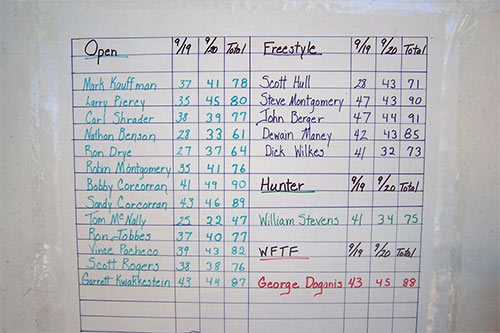 Open 9/19 9/20 Total
Mark Kauffman 37 41 78
Larry Piercy 35 45 80
Carl Shrader 38 39 77
Nathan Benson 28 33 61
Ron Drye 27 37 64
Robin Montgomery 35 41 76
Bobby Corcorran 41 49 90
Sandy Corcorran 43 46 89
Tom McNally 25 22 47
Ron Jobbes 37 40 77
Vince Pacheco 39 43 82
Scott Rogers 38 38 76
Garrett Kwakkestein 43 44 87
Freestyle 9/19 9/20 Total
Scott Hull 28 43 71
Steve Montgomery 47 43 90
John Berger 47 44 91
Dewain Maney 42 43 85
Dick Wilkes 41 32 73
Hunter 9/19 9/20 Total
William Stevens 41 34 75
WFTF 9/19 9/20 Total
George Doganis 43 45 88